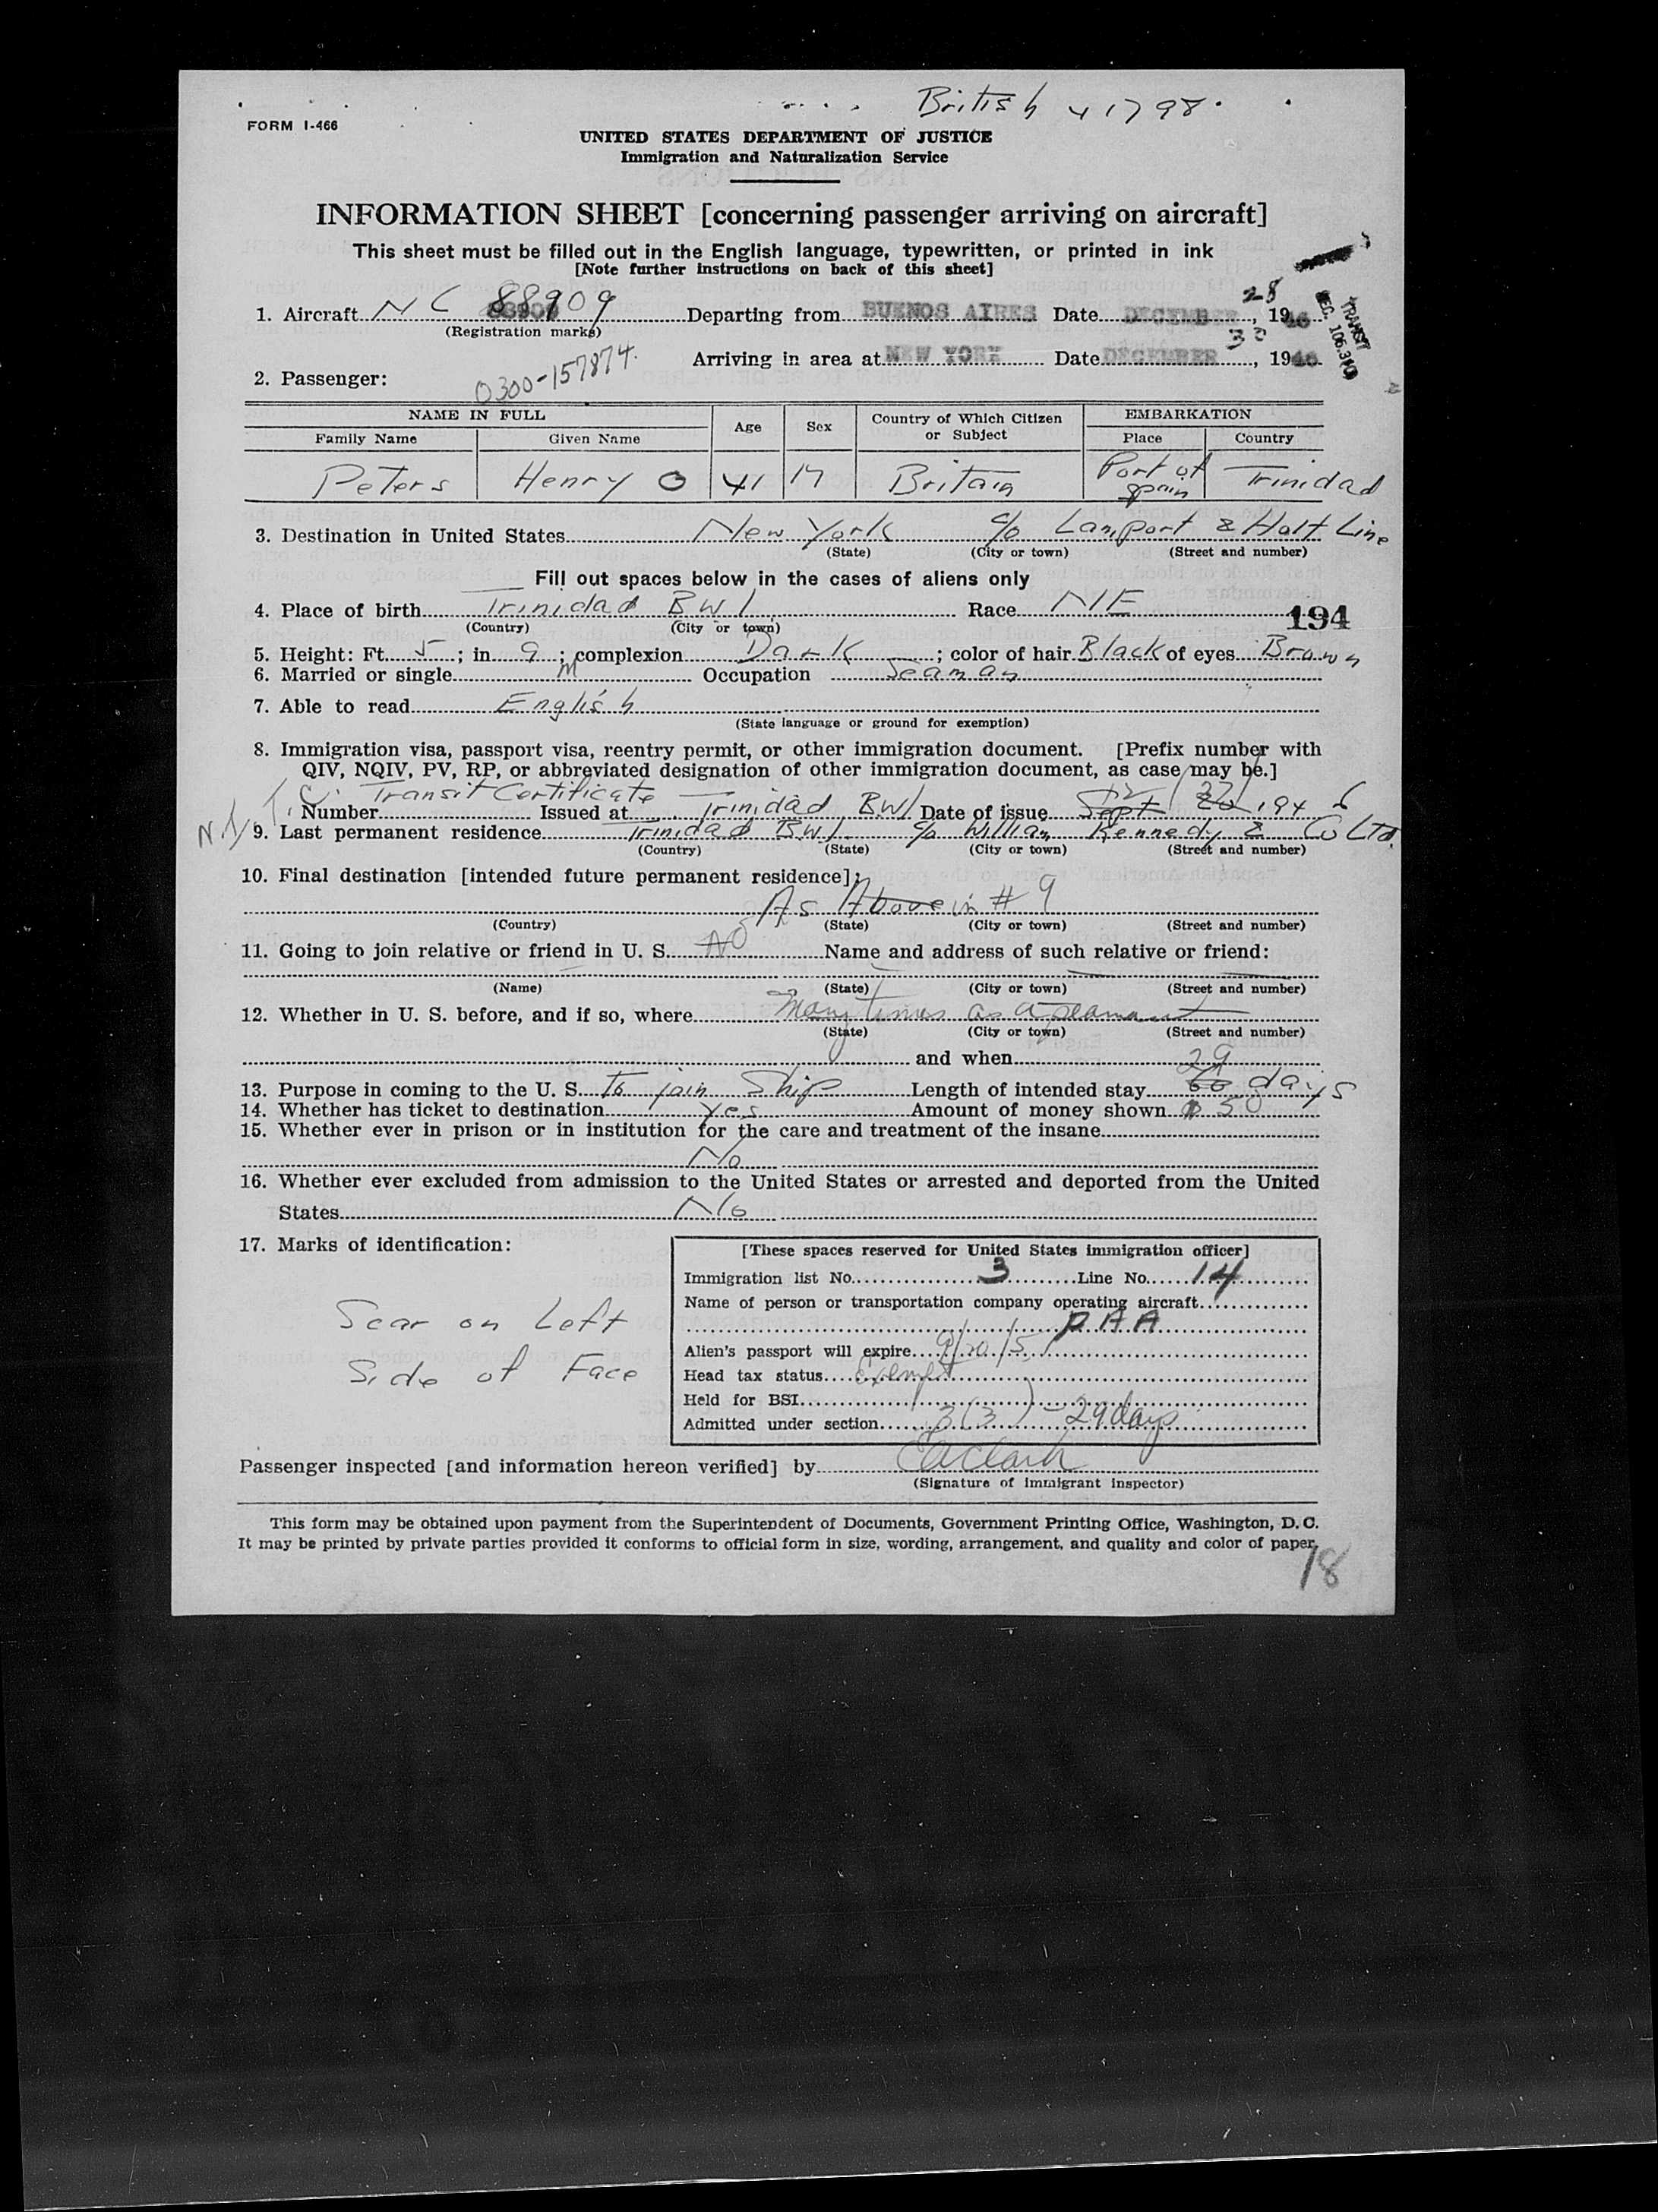 British 41798
FORM I-466
UNITED STATES DEPARTMENT OF JUSTICE
Immigration and Naturalization Service
INFORMATION SHEET [concerning passenger arriving on aircraft]
This sheet must be filled out in the English language, typewritten, or printed in ink
[Note further instructions on back of this sheet]
1. Aircraft NC 88909 Departing from BUENOS AIRES Date DECEMBER 28, 1946
(Registration marks)
TRANSIT
SEC. 106.3
Arriving in area at NEW YORK Date DECEMBER 30, 1946
2. Passenger: 0300-157874
NAME IN FULL Age Sex Country of Which Citizen or Subject EMBARKATION
Family Name Given Name Place Country
Peters Henry O 41 M Britain Port of Spain Trinidad
3. Destination in United States New York c/o Lamport & Holt Line
(State) (City or town) (Street and number)
Fill out spaces below in the cases of aliens only
4. Place of birth Trinidad BWI Race NE
194
(Country) (City or town)
5. Height: Ft. 5; in 9; complexion Dark; color of hair Black of eyes Brown
6. Married or single M Occupation Seaman
7. Able to read English
(State language or ground for exemption)
8. Immigration visa, passport visa, reentry permit, or other immigration document. [Prefix number with
QIV, NQIV, PV, RP, or abbreviated designation of other immigration document, as case may be.]
Transit Certificate
Number Issued at Trinidad BWI Date of issue Sept 12/27/1946
9. Last permanent residence Trinidad BWI c/o William Kennedy & Co Ltd.
(Country) (State) (City or town) (Street and number)
10. Final destination [intended future permanent residece]:
As Above in # 9
(Country) (State) (City or town) (Street and number)
11. Going to join relative or friend in U. S. No Name and address of such relative or friend:
(Name) (State) (City or town) (Street and number)
12. Whether in U. S. before, and if so, where Many times as a seaman
(State) (City or town) (Street and number)
and when
13. Purpose in coming to the U. S. To join Ship Length of intended stay 60 29 days
14. Whether has ticket to destination Yes Amount of money shown $50
15. Whether ever in prison or in institution for the care and treatment of the insane
No
16. Whether ever excluded from admission to the United States or arrested and deported from the United
States No
17. Marks of identification:
Scar on Left
Side of Face
[These spaces reserved for United States immigration officer]
Immigration list No. 3 Line No. 14
Name of person or transportation company operating aircraft
PAA
Alien's passport will expire 9/20/51
Head tax status Exempt
Held for BSI
Admitted under section 3(3) - 29 days
Passenger inspected [and information hereon verified] by
(Signature of immigrant inspector)
This form may be obtained upon payment from the Superintendent of Documents, Government Printing Office, Washington, D. C.
It may be printed by private parties provided it conforms to official form in size, wording, arrangement, and quality and color of paper.
18